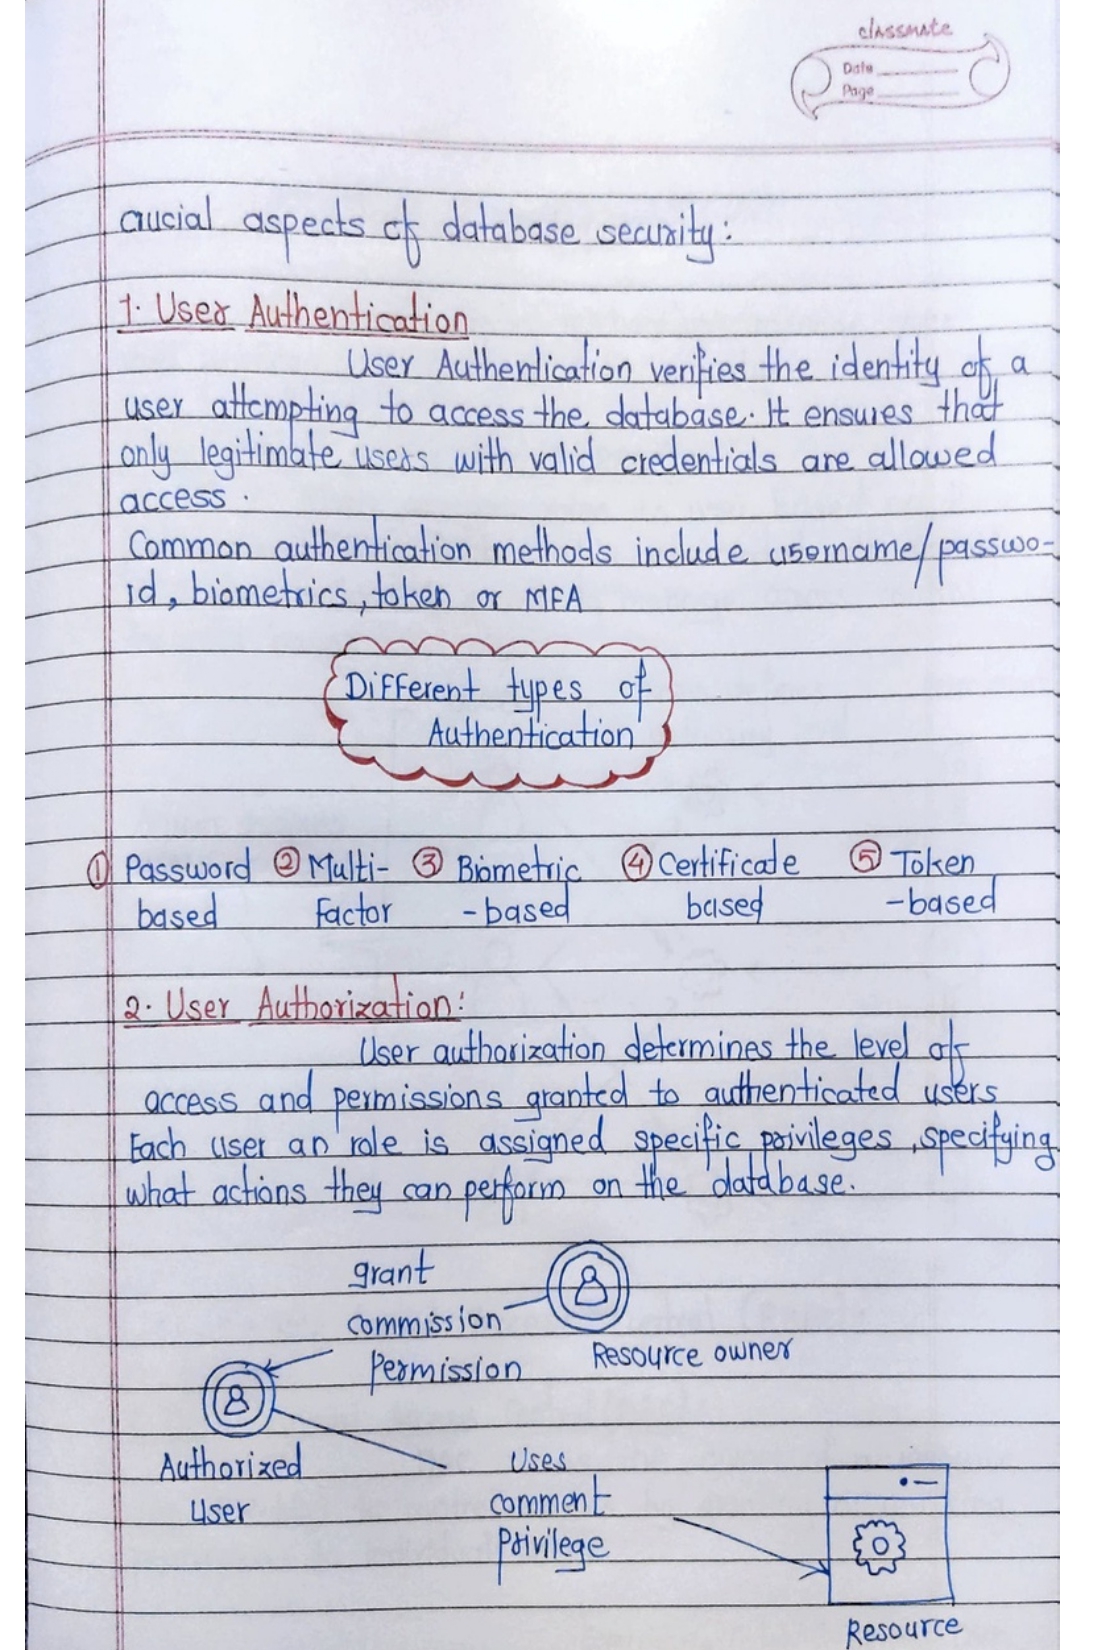 classmate
Date
Page
crucial aspects of database security:
1. User Authentication
User Authentication verifies the identity of a
user attempting to access the database. It ensures that
only legitimate users with valid credentials are allowed
access.
Common authentication methods include username/passwo-
rd, biometrics, token or MFA
Different types of
Authentication
① Password ② Multi- ③ Biometric ④ Certificate ⑤ Token
based Factor -based based -based
2. User Authorization:
User authorization determines the level of
access and permissions granted to authenticated users
Each user an role is assigned specific privileges, specifying
what actions they can perform on the database.
grant
commission
Permission
Resource owner
Authorized
User
Uses
comment
Privilege
Resource